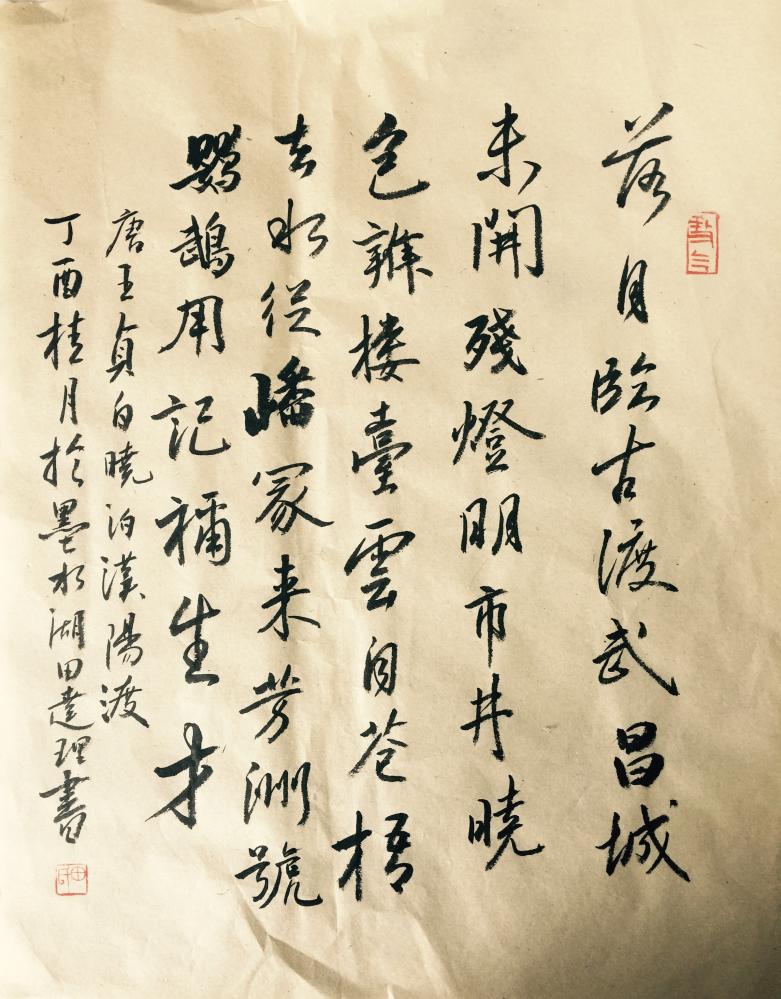 落月臨古渡武昌城
未開殘燈明市井曉
色辨楼臺雲自苍梧
去水從嶓冢来芳洲號
鸚鵡用記禰生才
唐王貞白曉泊漢陽渡
丁酉桂月於墨水湖田達理書